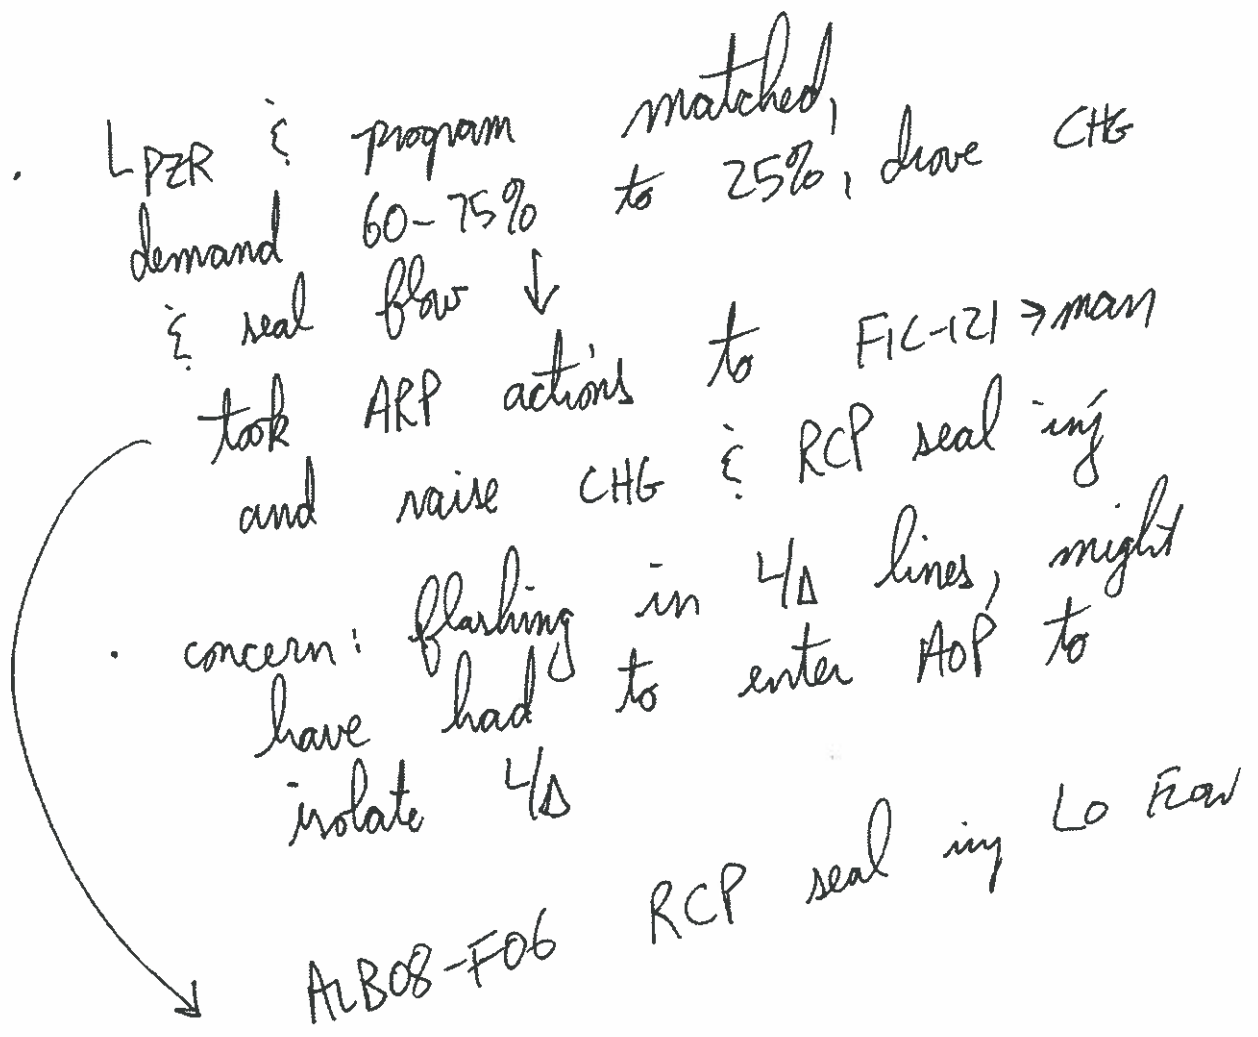 · LPZR & program matched,
demand 60-75% to 25%, drove CHG
& seal flow ↓
took ARP actions to FIC-121 → man
and raise CHG & RCP seal inj
· concern: flashing in L/D lines, might
have had to enter AOP to
isolate L/D
ALB08-F06 RCP seal inj Lo Flow